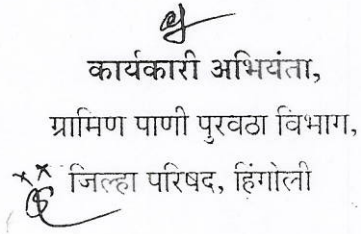 कार्यकारी अभियंता,
ग्रामिण पाणी पुरवठा विभाग,
जिल्हा परिषद, हिंगोली